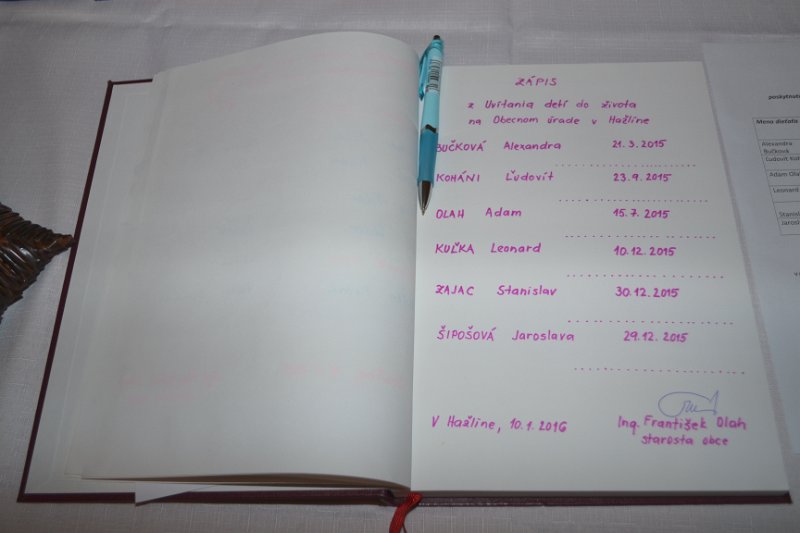 ZÁPIS
z Uvítania detí do života
na Obecnom úrade v Hažlíne
BUČKOVÁ Alexandra 21.3.2015
KOHÁNI Ľudovít 23.9.2015
OLAH Adam 15.7.2015
KUĽKA Leonard 10.12.2015
ZAJAC Stanislav 30.12.2015
ŠIPOŠOVÁ Jaroslava 29.12.2015
V Hažlíne, 10.1.2016
Ing. František Olah
starosta obce
Meno dieťaťa
Alexandra
Bučková
Ľudovít
Adam
Leonard